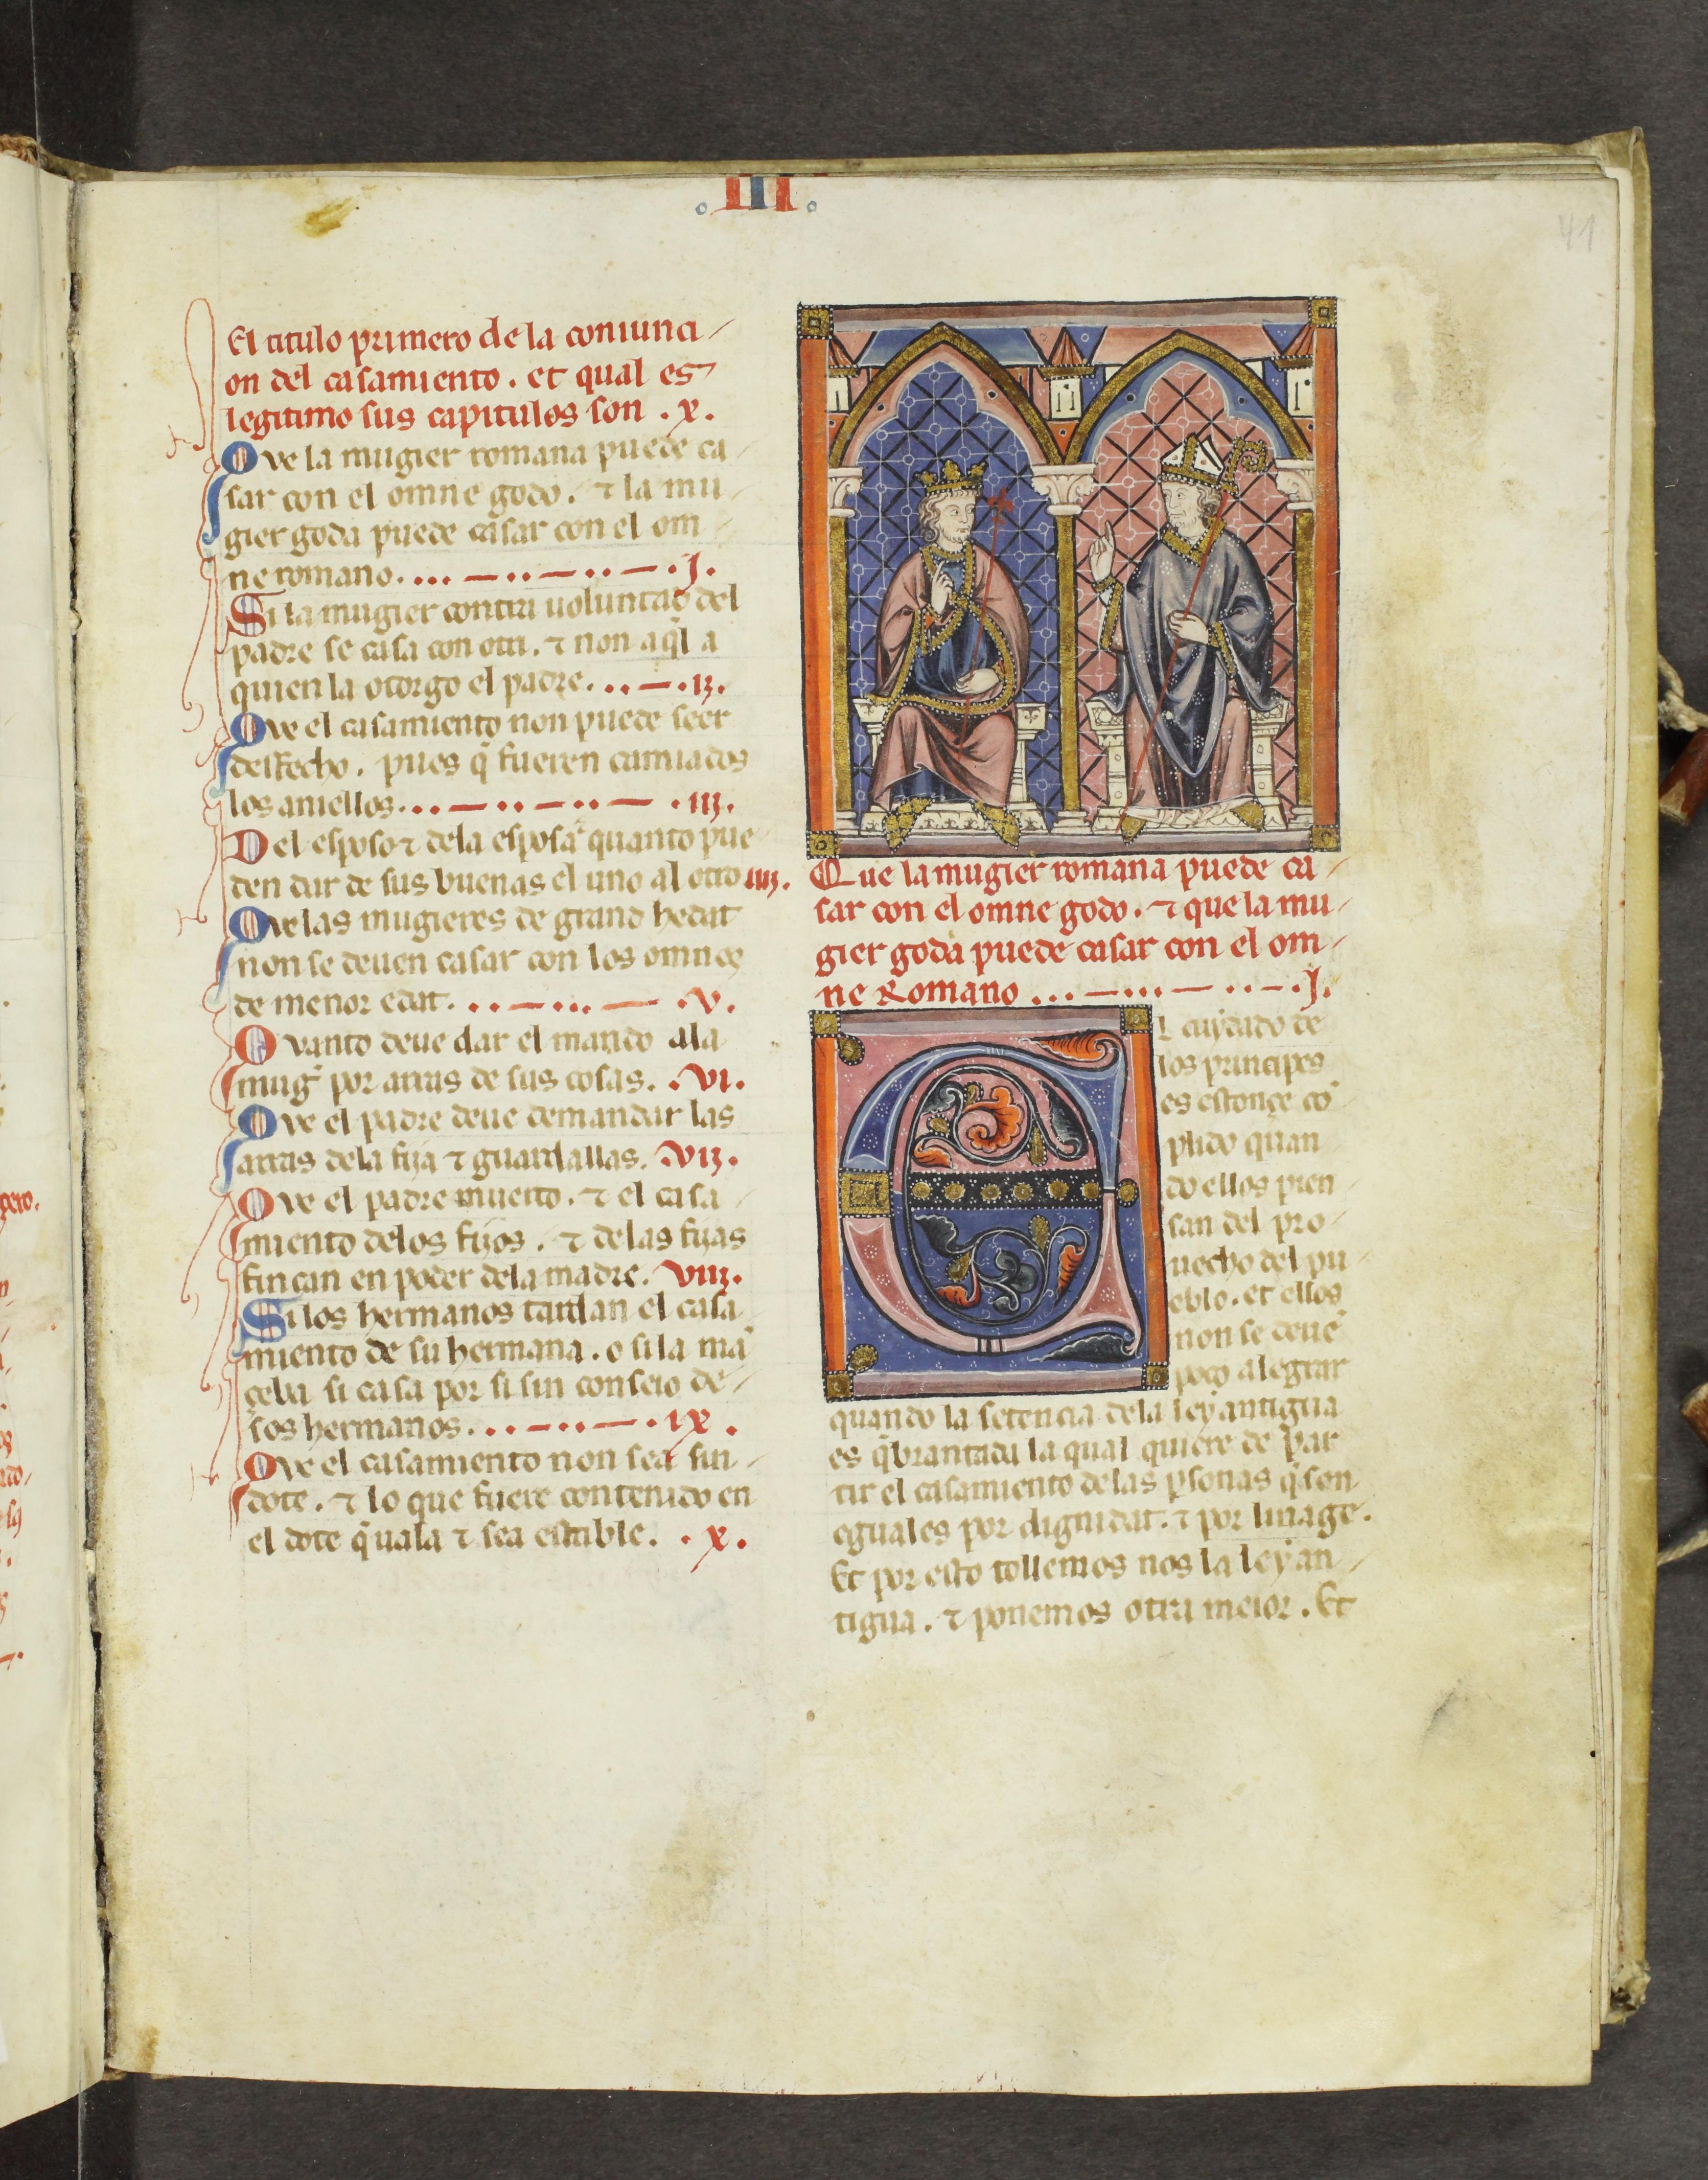 III
41
El titulo primero de la coniunci
on del casamiento. et qual es
legitimo sus capitulos son .x.
Que la mugier romana puede ca
sar con el omne godo. ⁊ la mu
gier goda puede casar con el om
ne romano. .I.
Si la mugier contra uoluntad del
padre se casa con otri. ⁊ non aq̃l a
quien la otorgo el padre. .II.
Que el casamiento non puede seer
desfecho. pues q̃ fueren camiados
los aniellos. .III.
Del esposo ⁊ dela esposa quanto pue
den dar de sus buenas el uno al otro IIII.
Que las mugieres de grand hedat
non se deuen casar con los omnes
de menor edat. .V.
Quanto deue dar el marido ala
mug̃ por arras de sus cosas. .VI.
Que el padre deue demandar las
arras dela fija ⁊ guardallas. .VII.
Que el padre muerto. ⁊ el casa
miento delos fijos. ⁊ delas fijas
fincan en poder dela madre. VIII.
Si los hermanos tardan el casa
miento de su hermana. o si la mã
çeba si casa por si sin conseio de
sos hermanos. .IX.
Que el casamiento non sea sin
dote. ⁊ lo que fuere contenido en
el dote q̃uala ⁊ sea estable. .X.
Que la mugier romana puede ca
sar con el omne godo. ⁊ que la mu
gier goda puede casar con el om
ne Romano .I.
El cuydado de
los principes
es estonçe cõ
plido quan
do ellos pien
san del pro
uecho del pu
eblo. et ellos
non se deuẽ
poco alegrar
quando la setencia dela ley antigua
es q̃brantada la qual quiere de par
tir el casamiento de las p̱sonas q̃ son
eguales por dignidat. ⁊ por linage.
Et por esto tollemos nos la ley an
tigua. ⁊ ponemos otra meior. Et